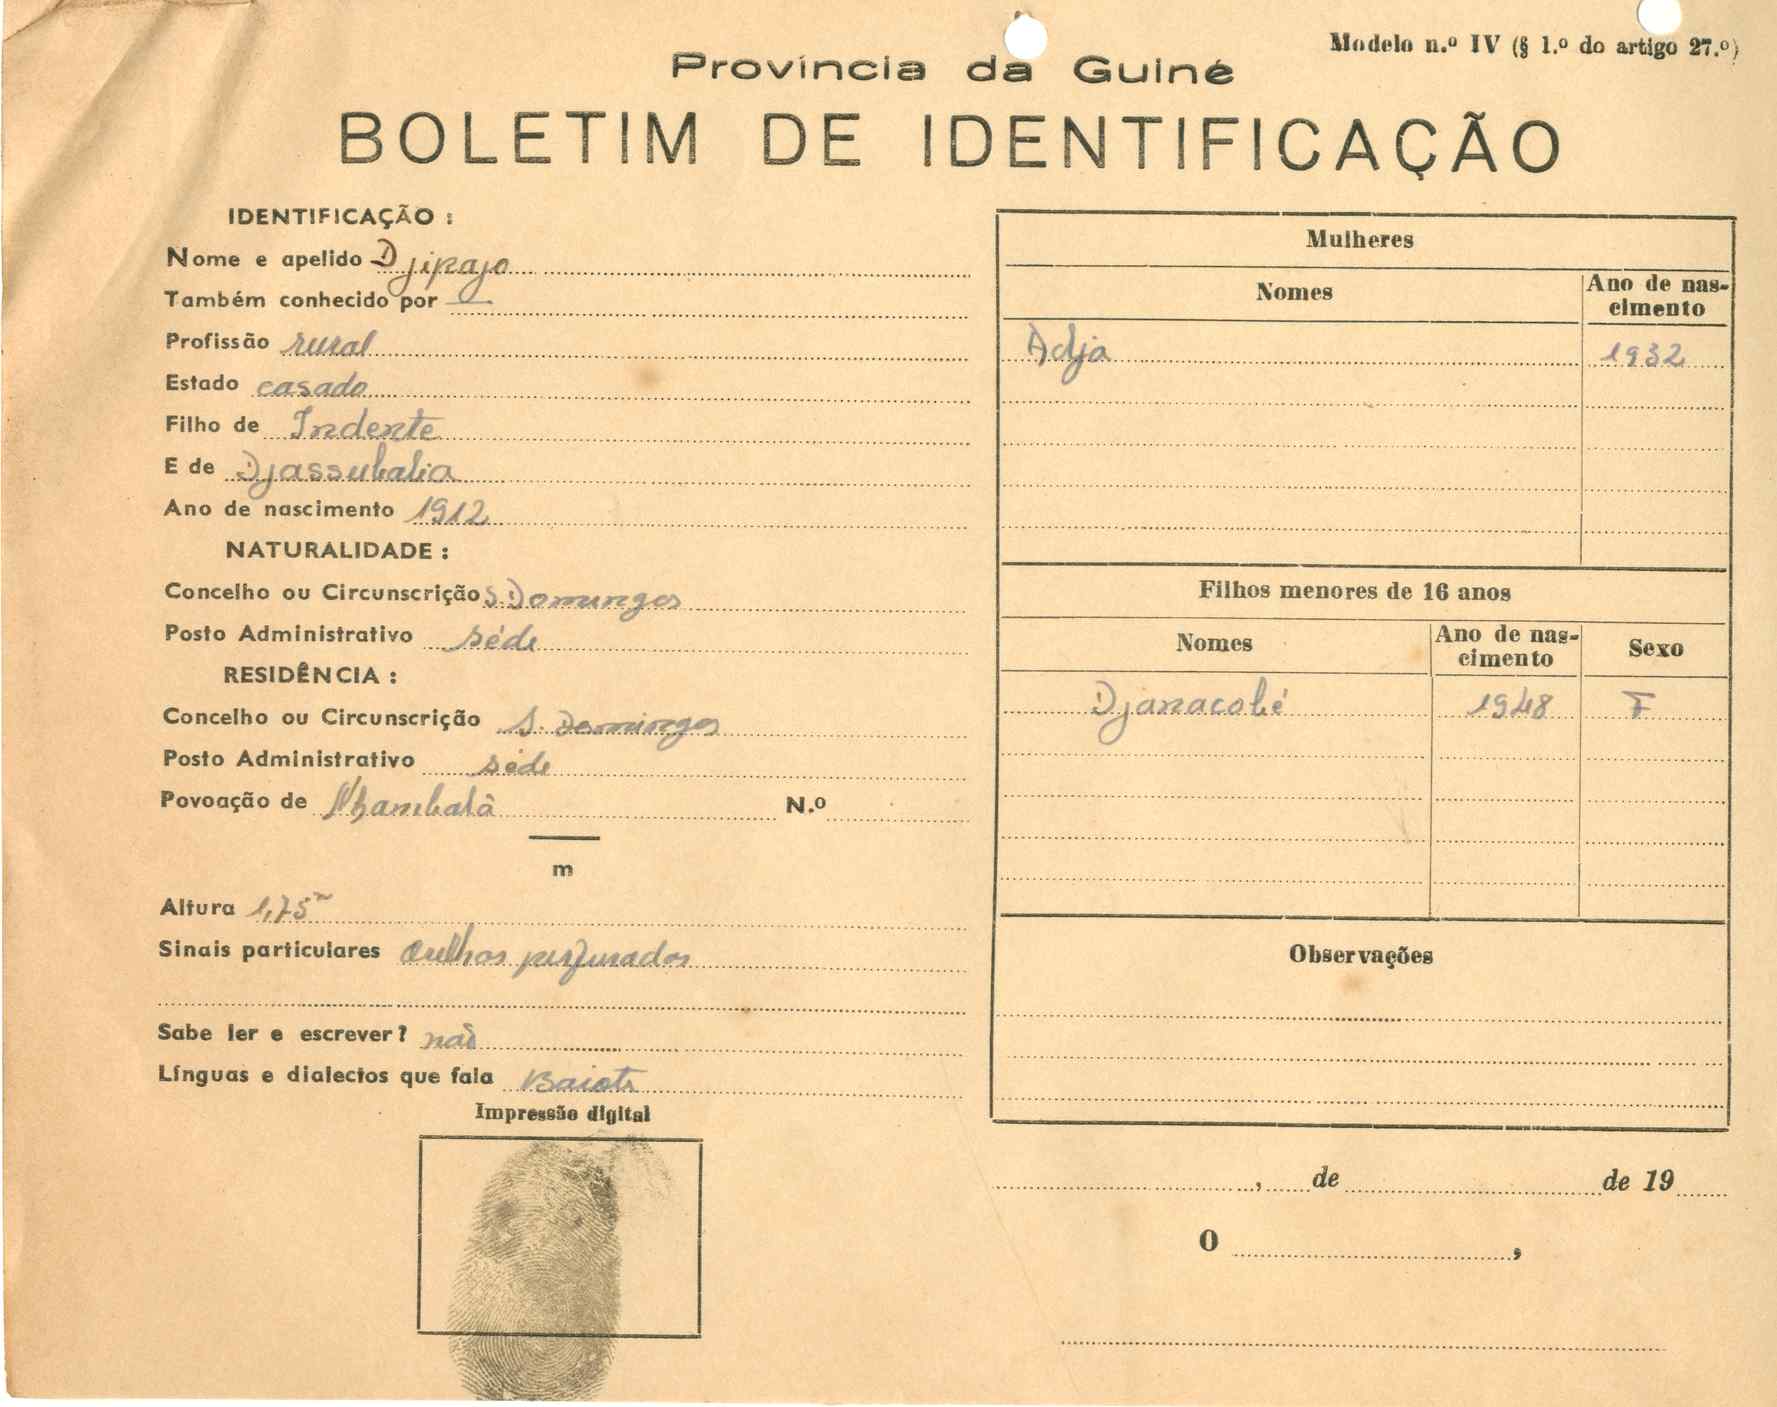 Modelo n.º IV (§ 1.º do artigo 27.º)
Província da Guiné
BOLETIM DE IDENTIFICAÇÃO
IDENTIFICAÇÃO :
Nome e apelido Djipajo
Também conhecido por —
Profissão rural
Estado casado
Filho de Indente
E de Djassubalia
Ano de nascimento 1912
NATURALIDADE :
Concelho ou Circunscrição S. Domingos
Posto Administrativo séde
RESIDÊNCIA :
Concelho ou Circunscrição S. Domingos
Posto Administrativo séde
Povoação de Nhambalã N.º
m
Altura 1,75m
Sinais particulares perfurados
Sabe ler e escrever? não
Línguas e dialectos que fala Baiote
Impressão digital
Mulheres
Nomes Ano de nas-
cimento
Adja 1932
Filhos menores de 16 anos
Nomes Ano de nas-
cimento Sexo
Djanacobé 1948 F
Observações
, de de 19
O ,